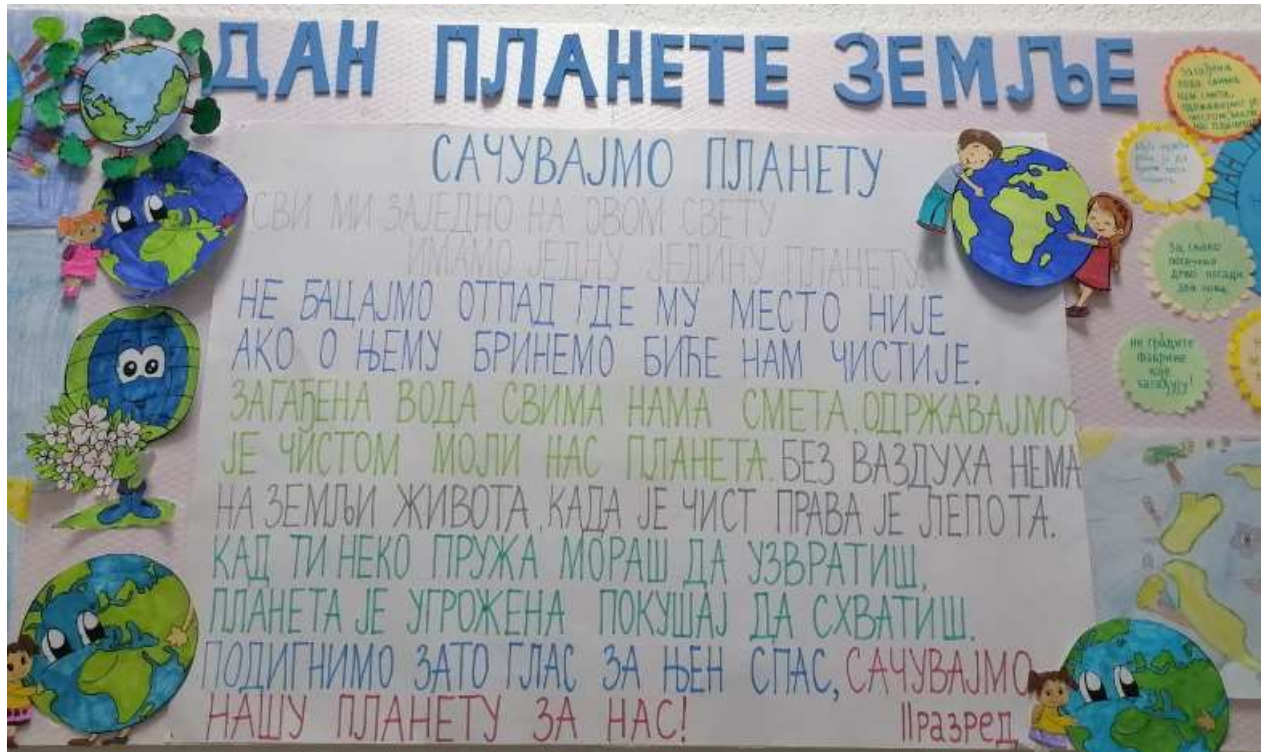 ДАН ПЛАНЕТЕ ЗЕМЉЕ
САЧУВАЈМО ПЛАНЕТУ
СВИ МИ ЗАЈЕДНО НА ОВОМ СВЕТУ
ИМАМО ЈЕДНУ ЈЕДИНУ ПЛАНЕТУ.
НЕ БАЦАЈМО ОТПАД ГДЕ МУ МЕСТО НИЈЕ
АКО О ЊЕМУ БРИНЕМО БИЋЕ НАМ ЧИСТИЈЕ.
ЗАГАЂЕНА ВОДА СВИМА НАМА СМЕТА, ОДРЖАВАЈМО
ЈЕ ЧИСТОМ МОЛИ НАС ПЛАНЕТА. БЕЗ ВАЗДУХА НЕМА
НА ЗЕМЉИ ЖИВОТА, КАДА ЈЕ ЧИСТ ПРАВА ЈЕ ЛЕПОТА.
КАД ТИ НЕКО ПРУЖА МОРАШ ДА УЗВРАТИШ,
ПЛАНЕТА ЈЕ УГРОЖЕНА ПОКУШАЈ ДА СХВАТИШ.
ПОДИГНИМО ЗАТО ГЛАС ЗА ЊЕН СПАС, САЧУВАЈМО
НАШУ ПЛАНЕТУ ЗА НАС!
II разред
Загађена
вода свима
нам смета,
одржавајмо је
чистом, моли
нас планета
За свако
посечено
дрво посади
два нова
не градите
фабрике
које
загађују!
ДАН